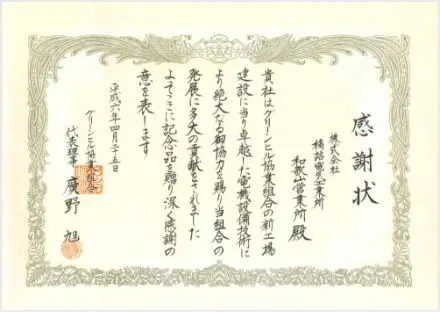 感謝状
株式会社
橋詰電気工業所
和歌山営業所 殿
貴社はグリーンヒル協業組合の新工場
建設に当り卓越した電機設備技術に
より絶大なる御協力を賜り当組合の
発展に多大の貢献をされました
よってここに記念品を贈り深く感謝の
意を表します
平成六年四月二十五日
グリーンヒル協業組合
代表理事 廣野 旭